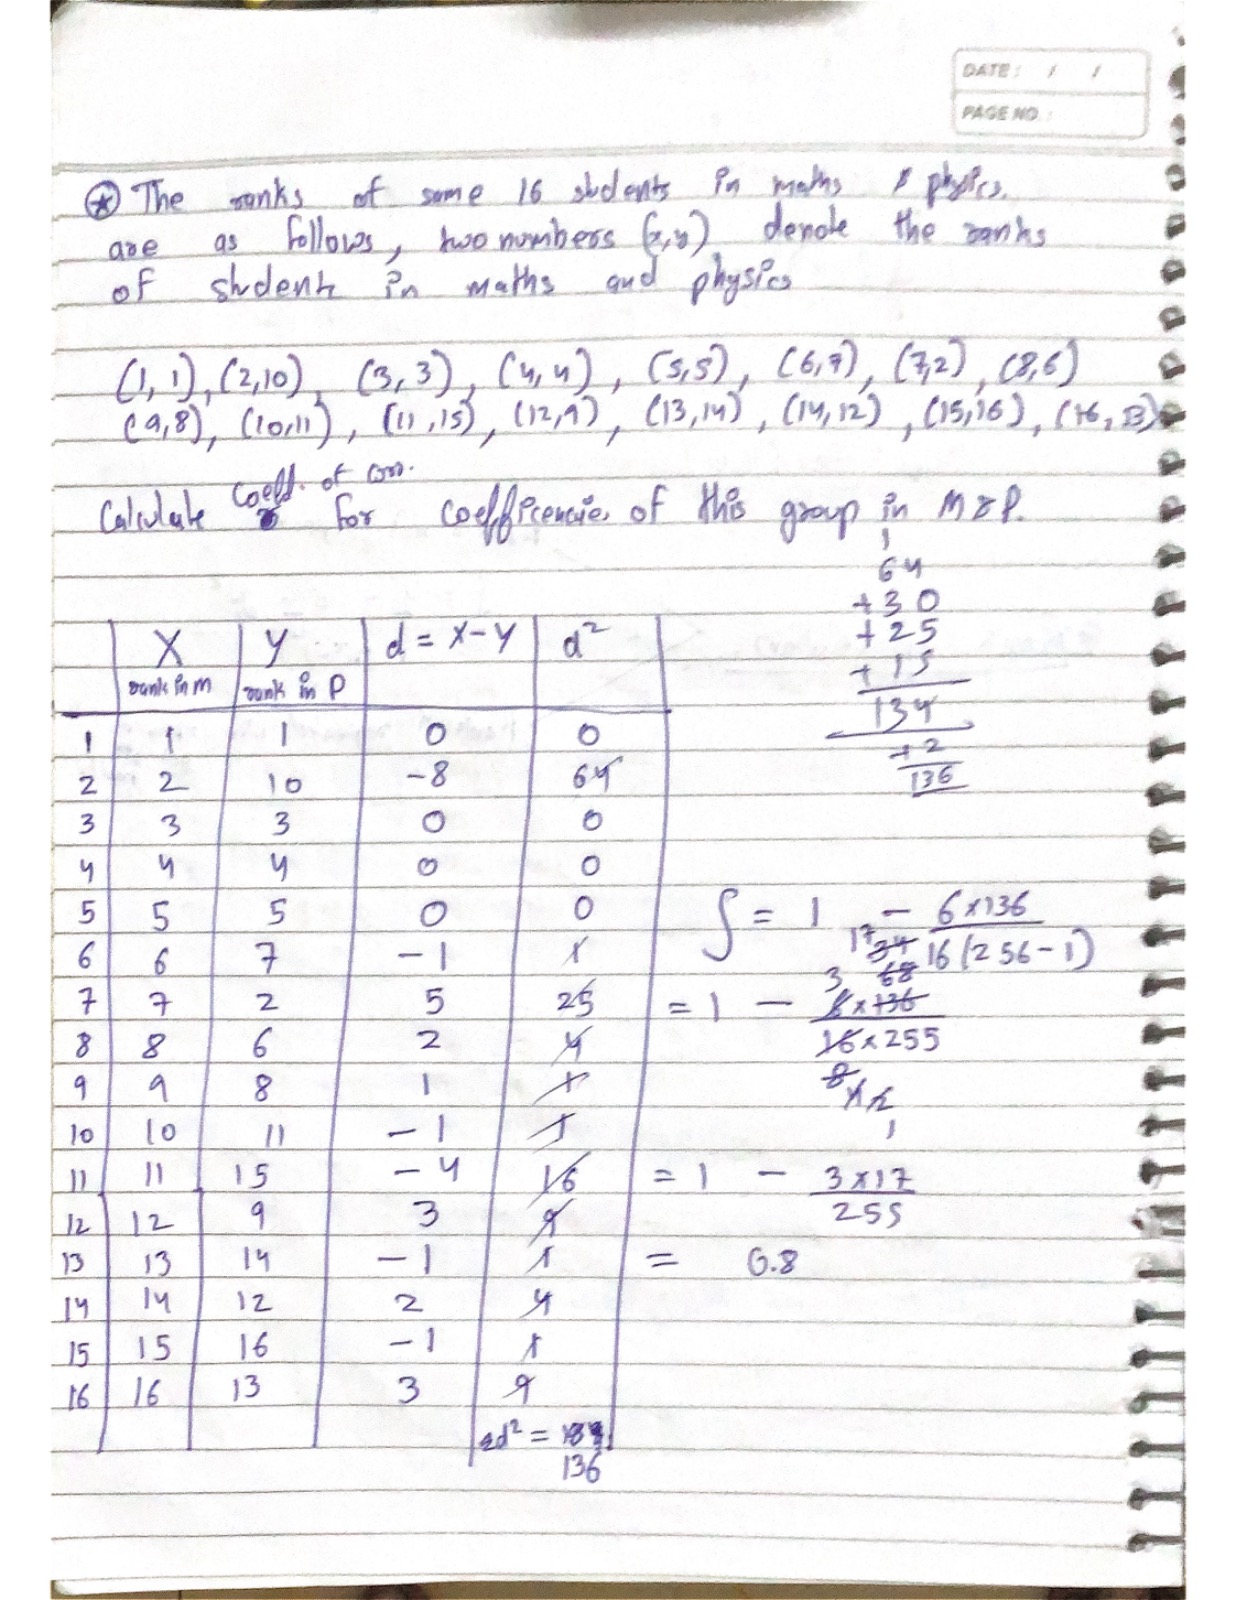 DATE: / /
PAGE NO.:
The ranks of some 16 students in maths & physics.
are as follows, two numbers (x,y) denote the ranks
of students in maths and physics
(1,1), (2,10), (3,3), (4,4), (5,5), (6,7), (7,2), (8,6)
(9,8), (10,11), (11,15), (12,9), (13,14), (14,12), (15,16), (16,13)
Calculate coeff. of corr. for coefficencies of this group in M & P.
1
64
+30
+25
+15
134
+2
136
X Y d = X-Y d²
rank in m rank in P
1 1 1 0 0
2 2 10 -8 64
3 3 3 0 0
4 4 4 0 0
5 5 5 0 0
6 6 7 -1 1
7 7 2 5 25
8 8 6 2 4
9 9 8 1 1
10 10 11 -1 1
11 11 15 -4 16
12 12 9 3 9
13 13 14 -1 1
14 14 12 2 4
15 15 16 -1 1
16 16 13 3 9
Σd² =
136
ρ = 1 - 6×136
16(256-1)
17
34
3 68
= 1 - 6×136
16×255
8
4 2
1
= 1 - 3×17
255
= 0.8